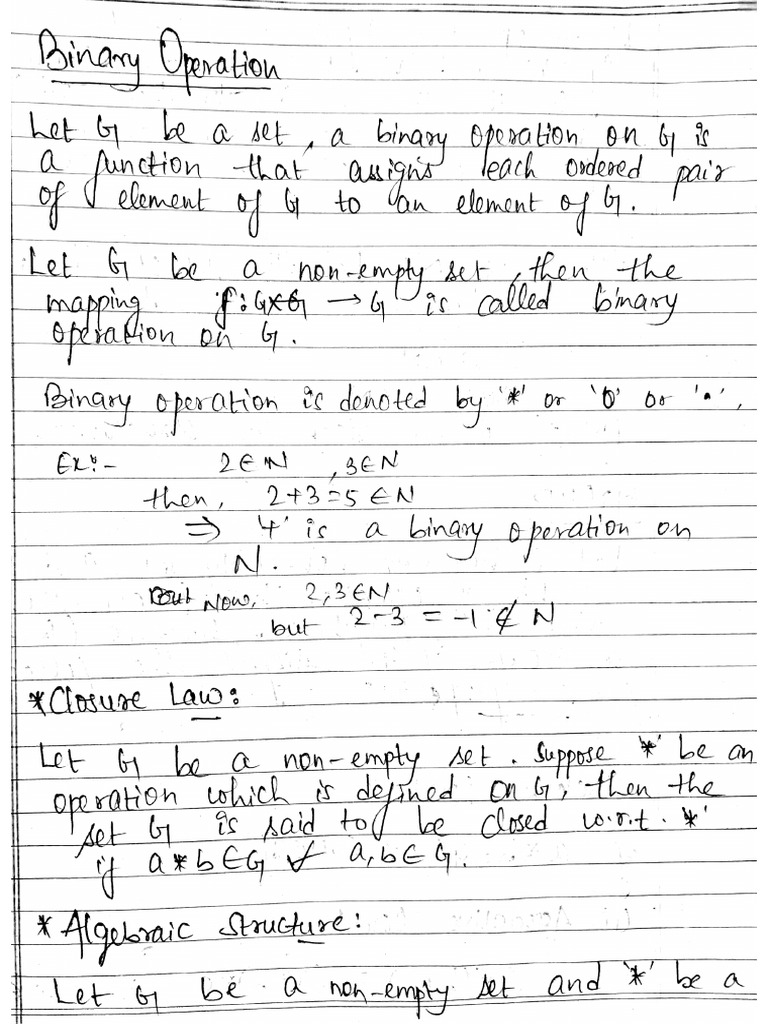 Binary Operation
Let G be a set, a binary operation on G is
a function that assigns each ordered pair
of element of G to an element of G.
Let G be a non-empty set, then the
mapping f: G×G → G is called binary
operation on G.
Binary operation is denoted by '*' or 'o' or '•',
Ex:- 2 ∈ N , 3 ∈ N
then, 2+3=5 ∈ N
⇒ '+' is a binary operation on
N.
But Now, 2,3 ∈ N
but 2-3 = -1 ∉ N
* Closure Law:
Let G be a non-empty set. Suppose '*' be an
operation which is defined on G, then the
set G is said to be closed w.r.t. '*'
if a*b ∈ G ∀ a,b ∈ G.
* Algebraic Structure:
Let G be a non-empty set and '*' be a